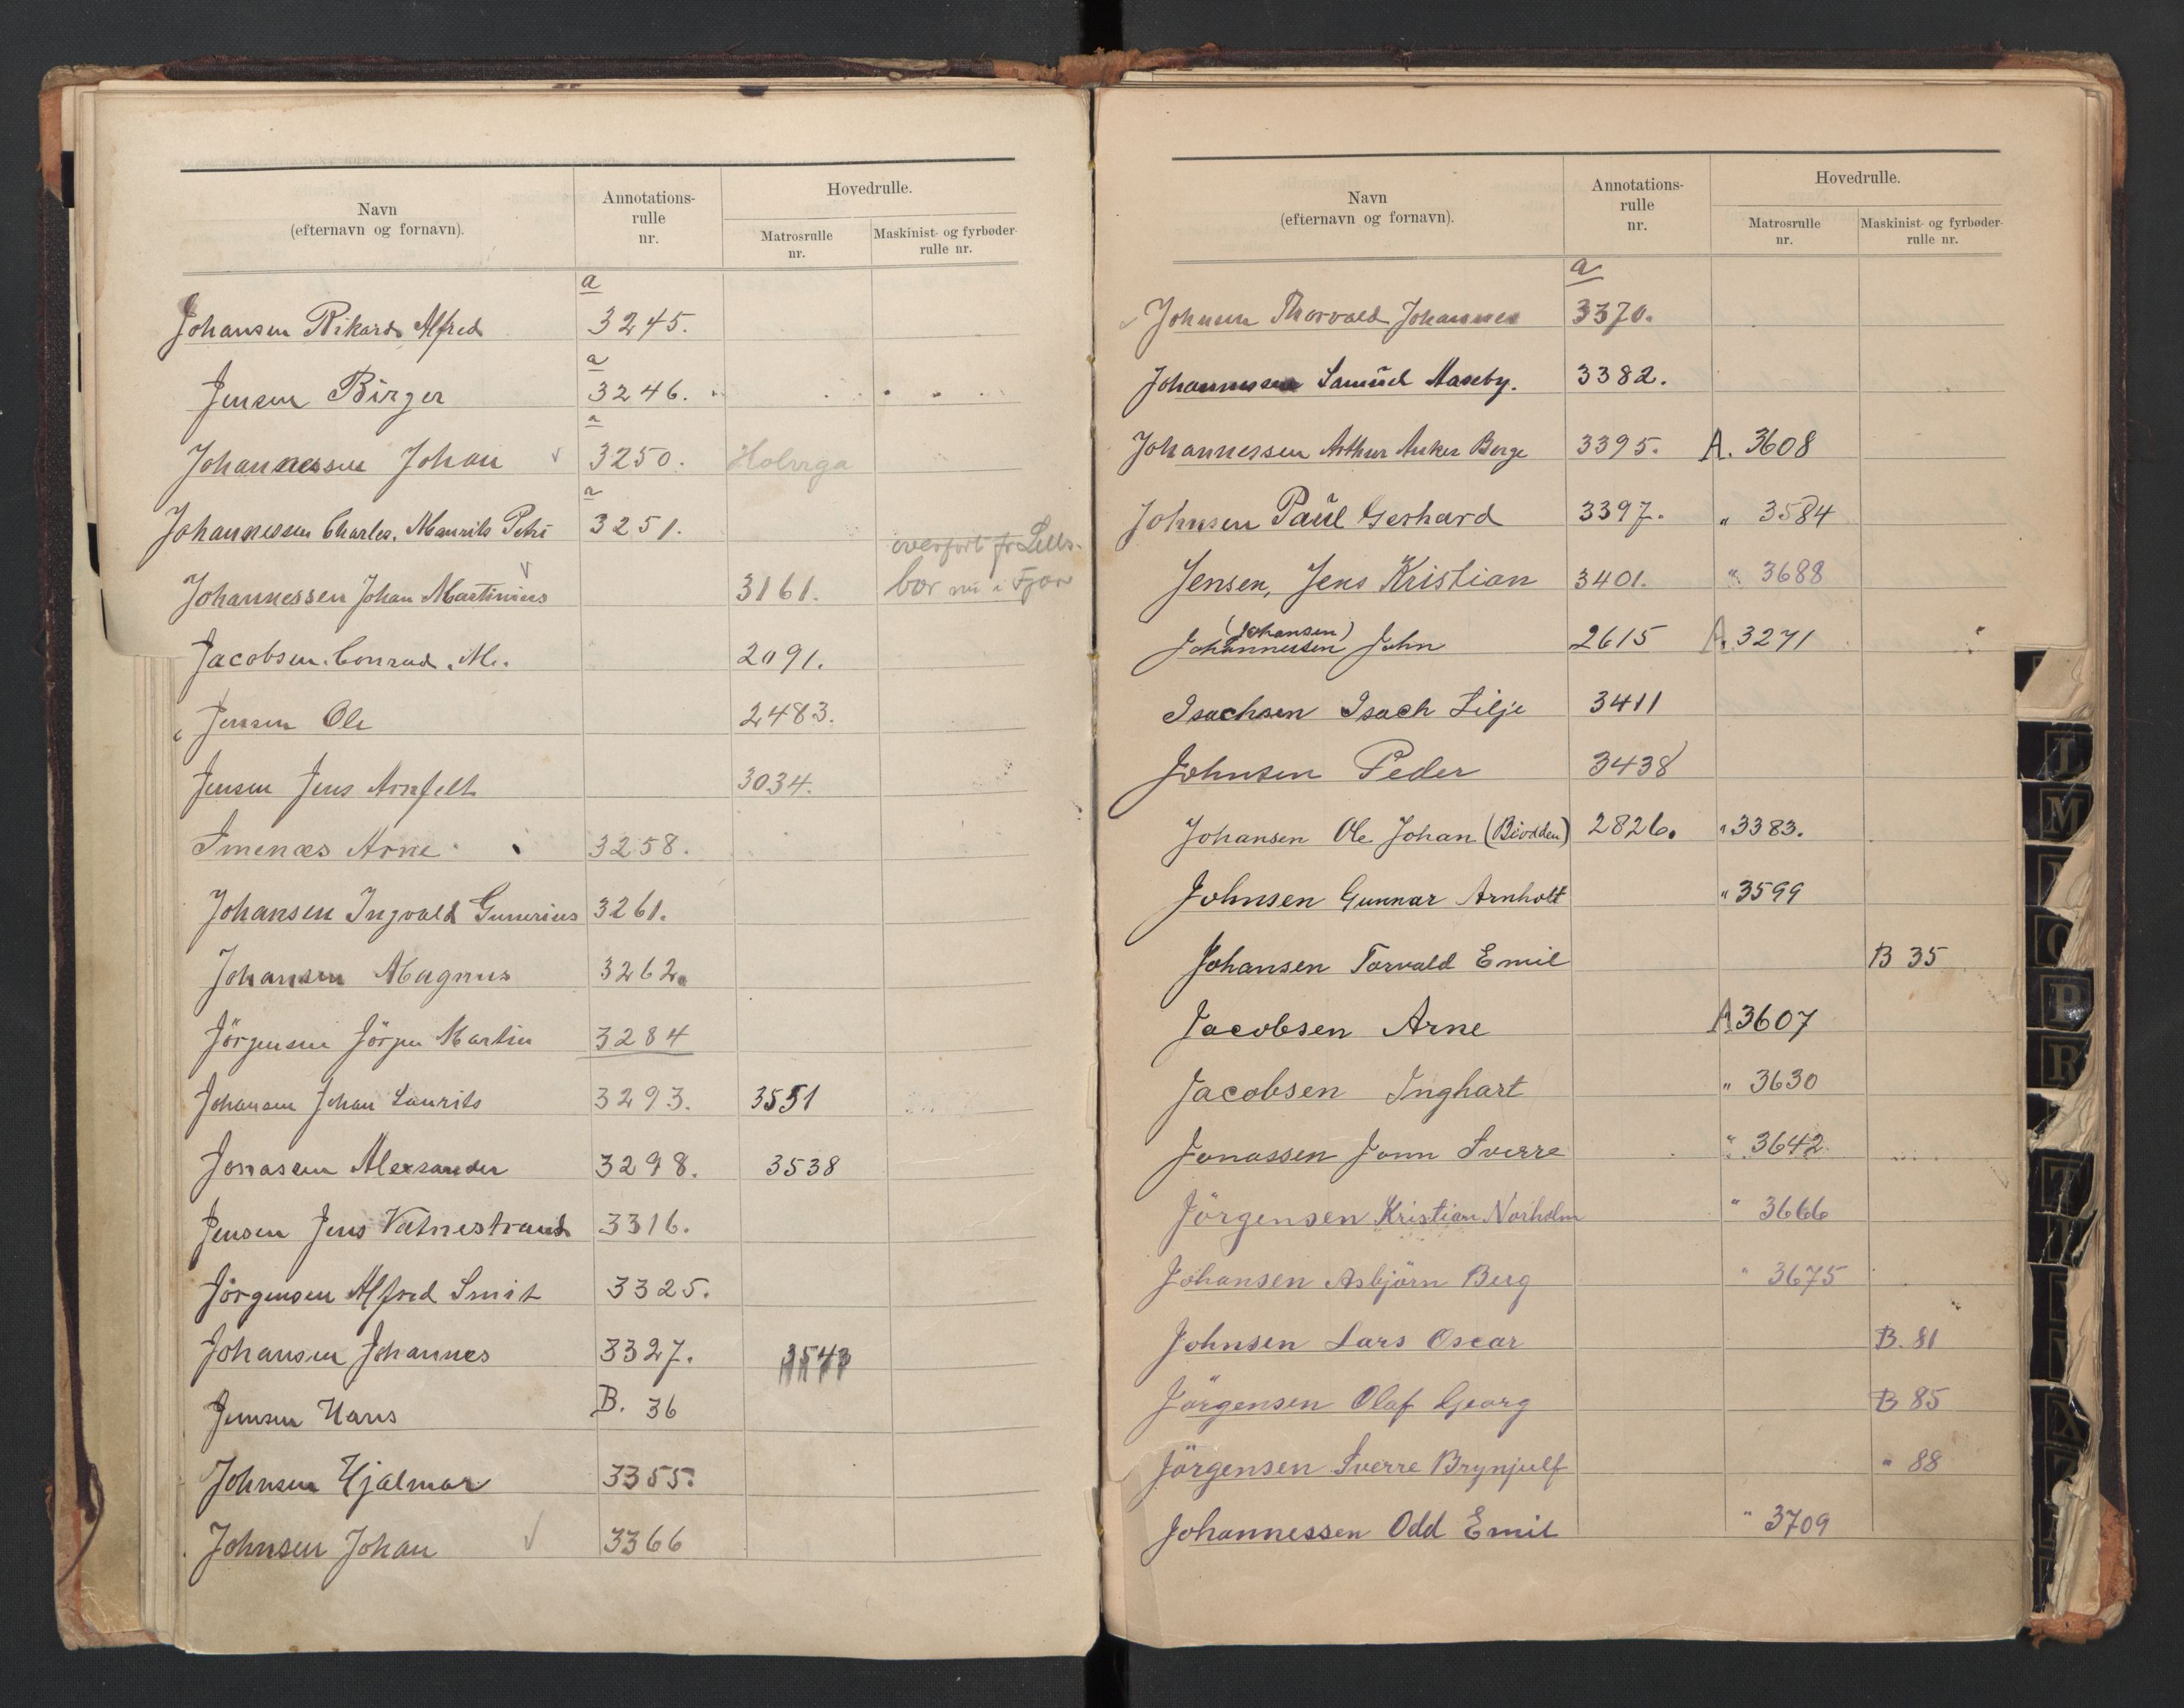 Navn
(efternavn og fornavn).
Annotations-
rulle
nr.
Hovedrulle.
Matrosrulle
nr.
Maskinist- og fyrbøder-
rulle nr.
a
Johansen Rikard Alfred 3245.
a
Jensen Birger 3246.
a
Johannessen Johan √ 3250. Holvrga
a
Johannessen Charles. Maurits Petri 3251.
overført fr Lills.
Johannessen Johan Martinius √ 3161. bor nu i Fjær
Jacobsen. Conrad. M. 2091.
Jensen Ole 2483.
Jensen Jens Arnfelt 3034.
Imenæs Arne 3258.
Johansen Ingvald Gunerius 3261.
Johansen Magnus 3262.
Jörgensen Jörgen Martin 3284
Johansen Johan Laurits 3293. 3551
Jonasen Alexsander 3298. 3538
Jensen Jens Vatnestrand 3316.
Jörgensen Alfred Smit 3325.
Johansen Johannes 3327. 3543
Jensen Hans B. 36
Johnsen Hjalmar 3355.
Johnsen Johan √ 3366
Navn
(efternavn og fornavn).
Annotations-
rulle
nr.
Hovedrulle.
Matrosrulle
nr.
Maskinist- og fyrbøder-
rulle nr.
a
√ Johnsen Thorvald Johannes 3370.
Johannessen Samuel Maseby. 3382.
Johannessen Arthur Anker Berge 3395. A. 3608
Johnsen Paul Gerhard 3397. " 3584
Jensen, Jens Kristian 3401. " 3688
(Johansen)
Johannessen John 2615 A. 3271
Isachsen Isach Lilje 3411
Johnsen Peder 3438
Johansen Ole Johan (Biodden) 2826. " 3383.
Johnsen Gunnar Arnholt " 3599
Johansen Torvald Emil B 35
Jacobsen Arne A 3607
Jacobsen Inghart " 3630
Jonassen Jonn Sverre " 3642
Jörgensen Kristian Norholm " 3666
Johansen Asbjörn Berg " 3675
Johnsen Lars Oscar B. 81
Jörgensen Olaf Georg B 85
Jörgensen Sverre Brynjulf " 88
Johannessen Odd Emil " 3709
I
M
O
P
R
T